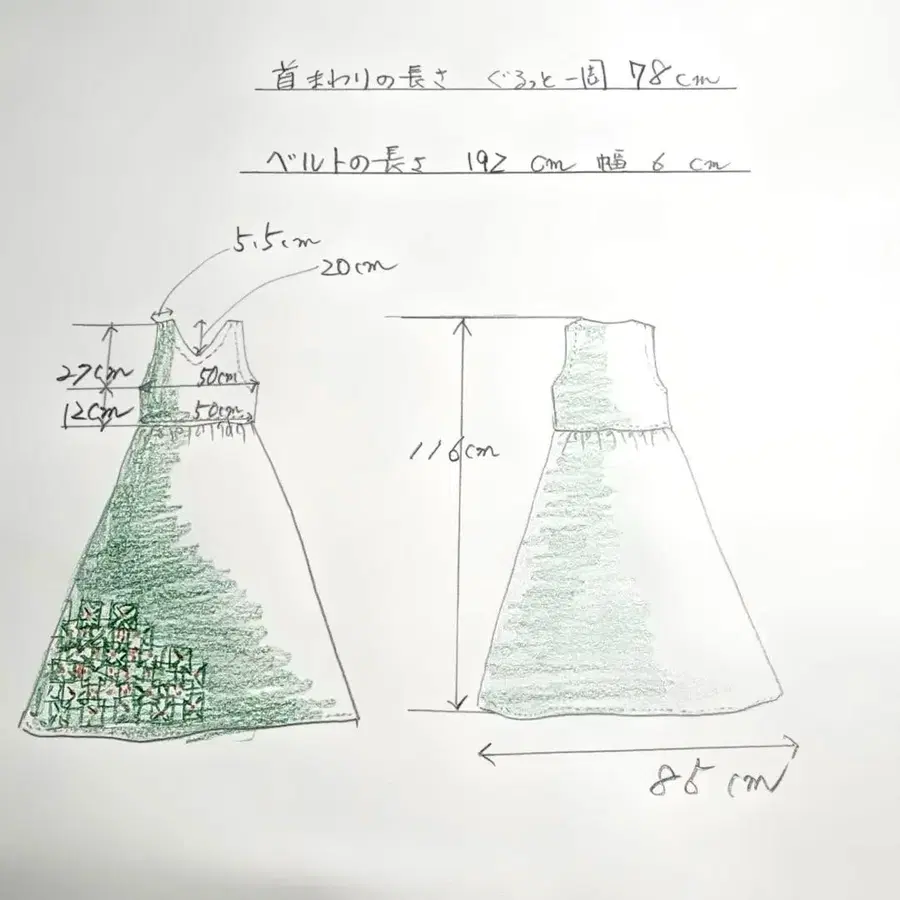 首まわりの長さ ぐるっと一周 78cm
ベルトの長さ 192cm 幅 6cm
5.5cm
20cm
27cm
50cm
12cm
50cm
116cm
85cm